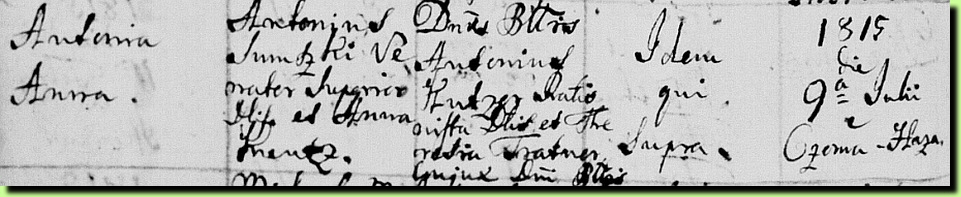 Antonia
Anna.
Antonius
Sumszki Ve
nater Superior
Hlis et Anna
Kneutz.
Dnus Bllris
Antonius
Kutzer Ratio
nista Dlis et The
resia Tratner
Conjux Dni Bllris
Idem
qui
Supra.
1815
die
9ª Julii
e
Czerna-Haza.